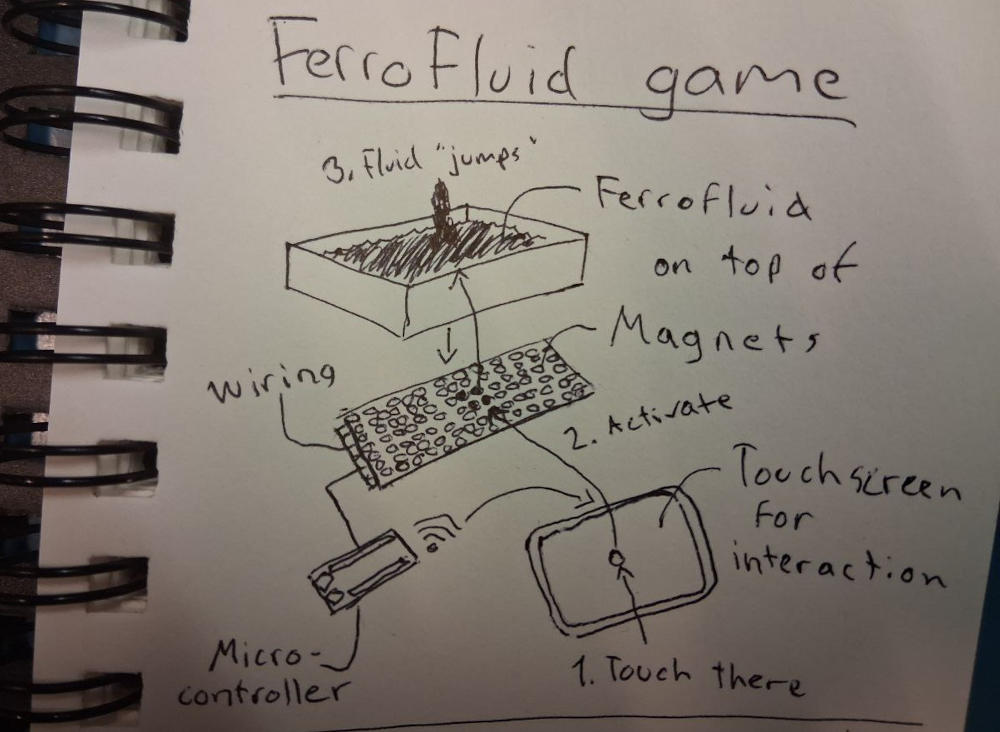 FerroFluid game
3. Fluid "jumps"
Ferrofluid
on top of
Magnets
Wiring
2. Activate
Touchscreen
For
interaction
Micro-
controller
1. Touch there